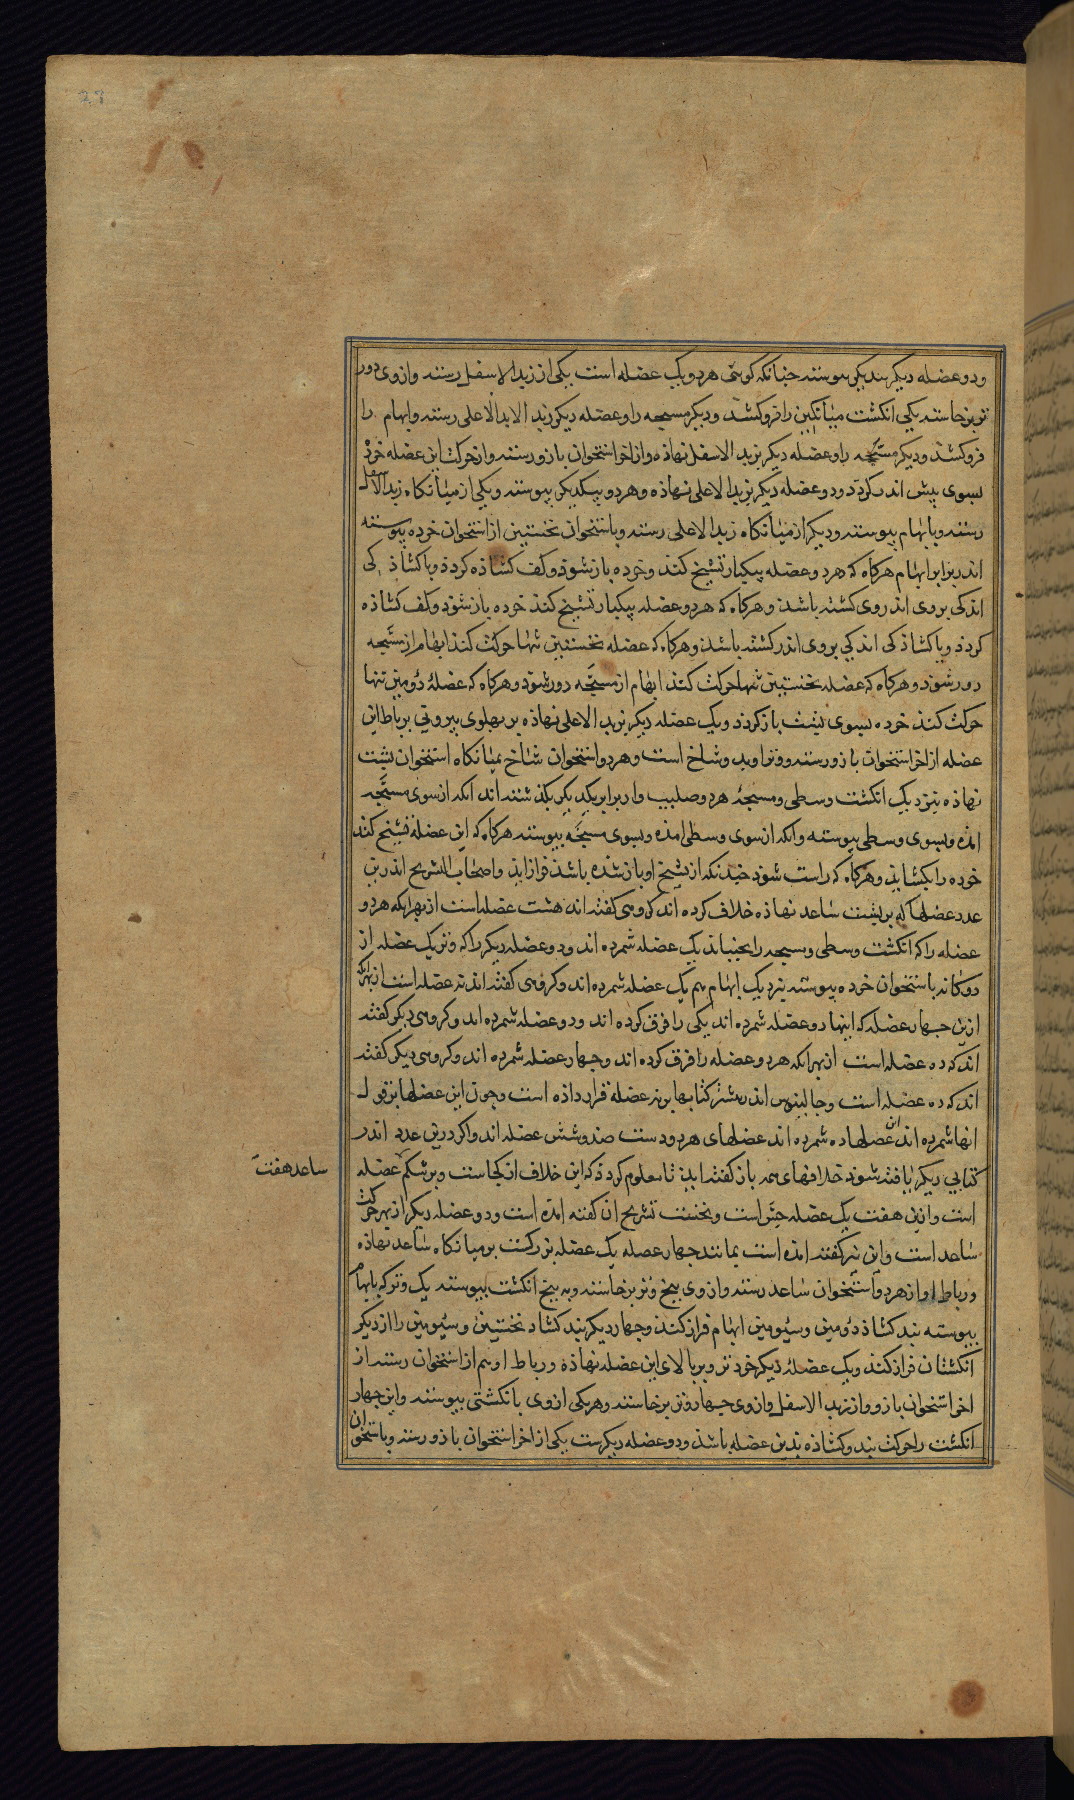 ودو عضله دیکر بیکدیکر پیوسته جنانکه کوئی هر دو یک عضله است یکی از زند الاسفل رسته وازوی دور
تو برخاسته یکی انکشت میانکین را فروکشد ودیکر مسبحه را وعضله دیکر زند الاعلی رسته وابهام را
فروکشد ودیکر مسبّحه را وعضله دیکر بزند الاسفل نهاذه واز اخر استخوان بازو رسته واز حرکت این عضله خرده
بسوی پیش اندر کردد ودو عضله دیکر بزند الاعلی نهاذه وهر دو بیکدیکر پیوسته ویکی از میانکاه زند الاسفل
رسته وبابهام پیوسته ودیکر از میانکاه زند الاعلی رسته وباستخوان نخستین از استخوان خرده پیوسته
اندر برابر ابهام هرکاه که هر دو عضله بیکبار تشنج کند وخرده باز شود وکف کشاذه کردد وبا کشاذکی
اندکی بروی اندر وی کشته باشد وهرکاه که هر دو عضله بیکبار تشنج کند خرده باز شود وکف کشاذه
کردد وبا کشاذکی اندکی بروی اندر کشته باشد وهرکاه که عضله نخستین تنها حرکت کند ابهام از مسبّحه
دور شود وهرکاه که عضله نخستین تنها حرکت کند ابهام از مسبّحه دور شود وهرکاه که عضلۀ دومین تنها
حرکت کند خرده بسوی پشت باز کردد ویک عضله دیکر بزند الاعلی نهاذه بر بهلوی بیرونی برباط این
عضله از اخر استخوان بازو رسته ووتر او بدو شاخ است وهر دو استخوان شاخ بمیانکاه استخوان پشت
نهاذه نزدیک انکشت وسطی ومسبحۀ هر دو صلیب وار برابر یکدیکر بکذشته اند انکه از سوی مسبّحه
امذه وبسوی وسطی پیوسته وانکه از سوی وسطی امذه وبسوی مسبّحه پیوسته هرکاه که این عضله تشنج کند
خرده را بکشاید وهرکاه که راست شود جندانکه از تشنج او باز شده باشد فراز اید واصحاب التشریح اندرین
عدد عضلها که بر پشت ساعد نهاذه خلاف کرده اند کروهی کفته اند هشت عضله است از بهر انکه هر دو
عضله را که انکشت وسطی ومسبحه را بجنباند یک عضله شمرده اند ودو عضله دیکر را که وتر یک عضله از
دوکانه باستخوان خرده پیوسته نزدیک ابهام هم یک عضله شمرده اند وکروهی کفته اند نه عضله است از بهر انکه
ازین جهار عضله که اینها دو عضله شمرده اند یکی را فرق کرده اند ودو عضله شمرده اند وکروهی دیکر کفته
اند که ده عضله است از بهر انکه هر دو عضله را فرق کرده اند وجهار عضله شمرده اند وکروهی دیکر کفته
اند که ده عضله است وجالینوس اندر بیشتر کتابها بر نه عضله قرار داذه است وجون این عضلها بر قول
انها شمرده اند این عضلها ده شمرده اند عضلهای هر دو دست صد وشش عضله اند واکر درین عدد اندر
کتابی دیکر یافته شود خلافهای همه باز کفته اید تا معلوم کردد که این خلاف از کجاست وبر شکم عضله
ساعد هفت
است وازین هفت یک عضله حسّ است ونخست تشریح ان کفته امذه است ودو عضله دیکر از بهر حرکت
ساعد است واین نیز کفته امذه است بماند جهار عضله یک عضله بزرکست بر میانکاه ساعد نهاذه
ورباط او از هر دو استخوان ساعد رسته وازوی پنج وتر برخاسته وبه پنج انکشت پیوسته یک وتر که بابهام
پیوسته بند کشاذ دومین وسیومین ابهام فراز کند وجهار دیکر بند کشاد نخستین وسیومین را از دیکر
انکشتان فراز کند ویک عضلۀ دیکر خردتر وبر بالای این عضله نهاذه ورباط او هم از استخوان رسته از
اخر استخوان بازو واز زند الاسفل وازوی جهار وتر برخاسته وهر یکی ازوی بانکشتی پیوسته واین جهار
انکشت را حرکت بند وکشاذه بدین عضله باشد ودو عضله دیکرست یکی از اخر استخوان بازو رسته وباستخوان